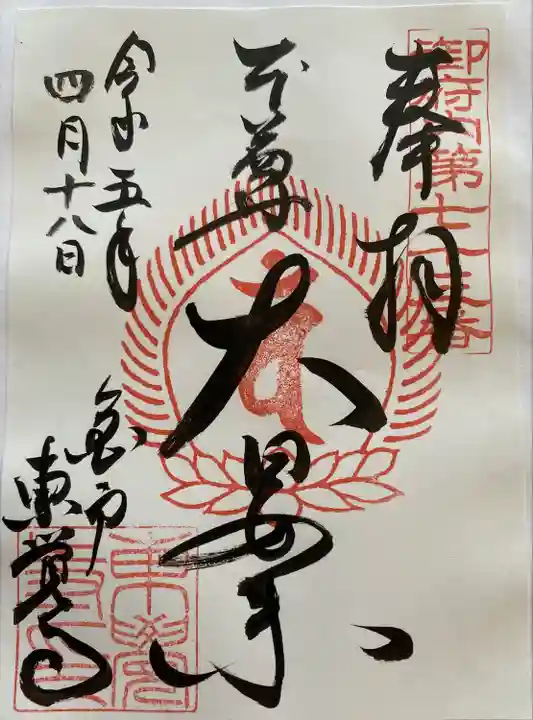 御府内第七十三番
奉拝
本尊
大日如来
令和五年
四月十八日
亀戸
東覚寺